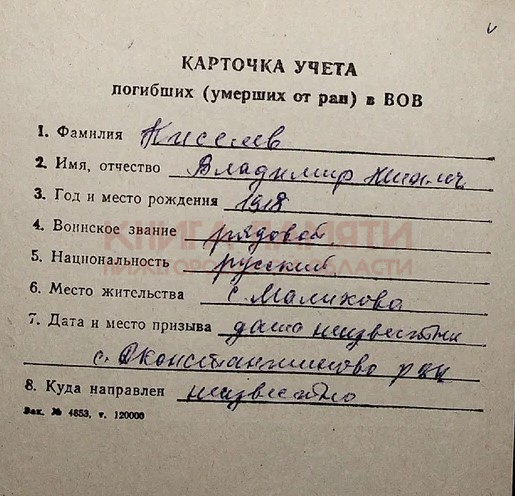 КАРТОЧКА УЧЕТА
погибших (умерших от ран) в ВОВ
1. Фамилия Киселев
2. Имя, отчество Владимир
3. Год и место рождения 1918
КНИГА ПАМЯТИ
4. Воинское звание рядовой
НИЖЕГОРОДСКОЙ ОБЛАСТИ
5. Национальность русский
6. Место жительства с. Маликова
7. Дата и место призыва дата неизвестна
с. Дконстантиново рвк
8. Куда направлен неизвестно
Зак. № 4853, т. 120000